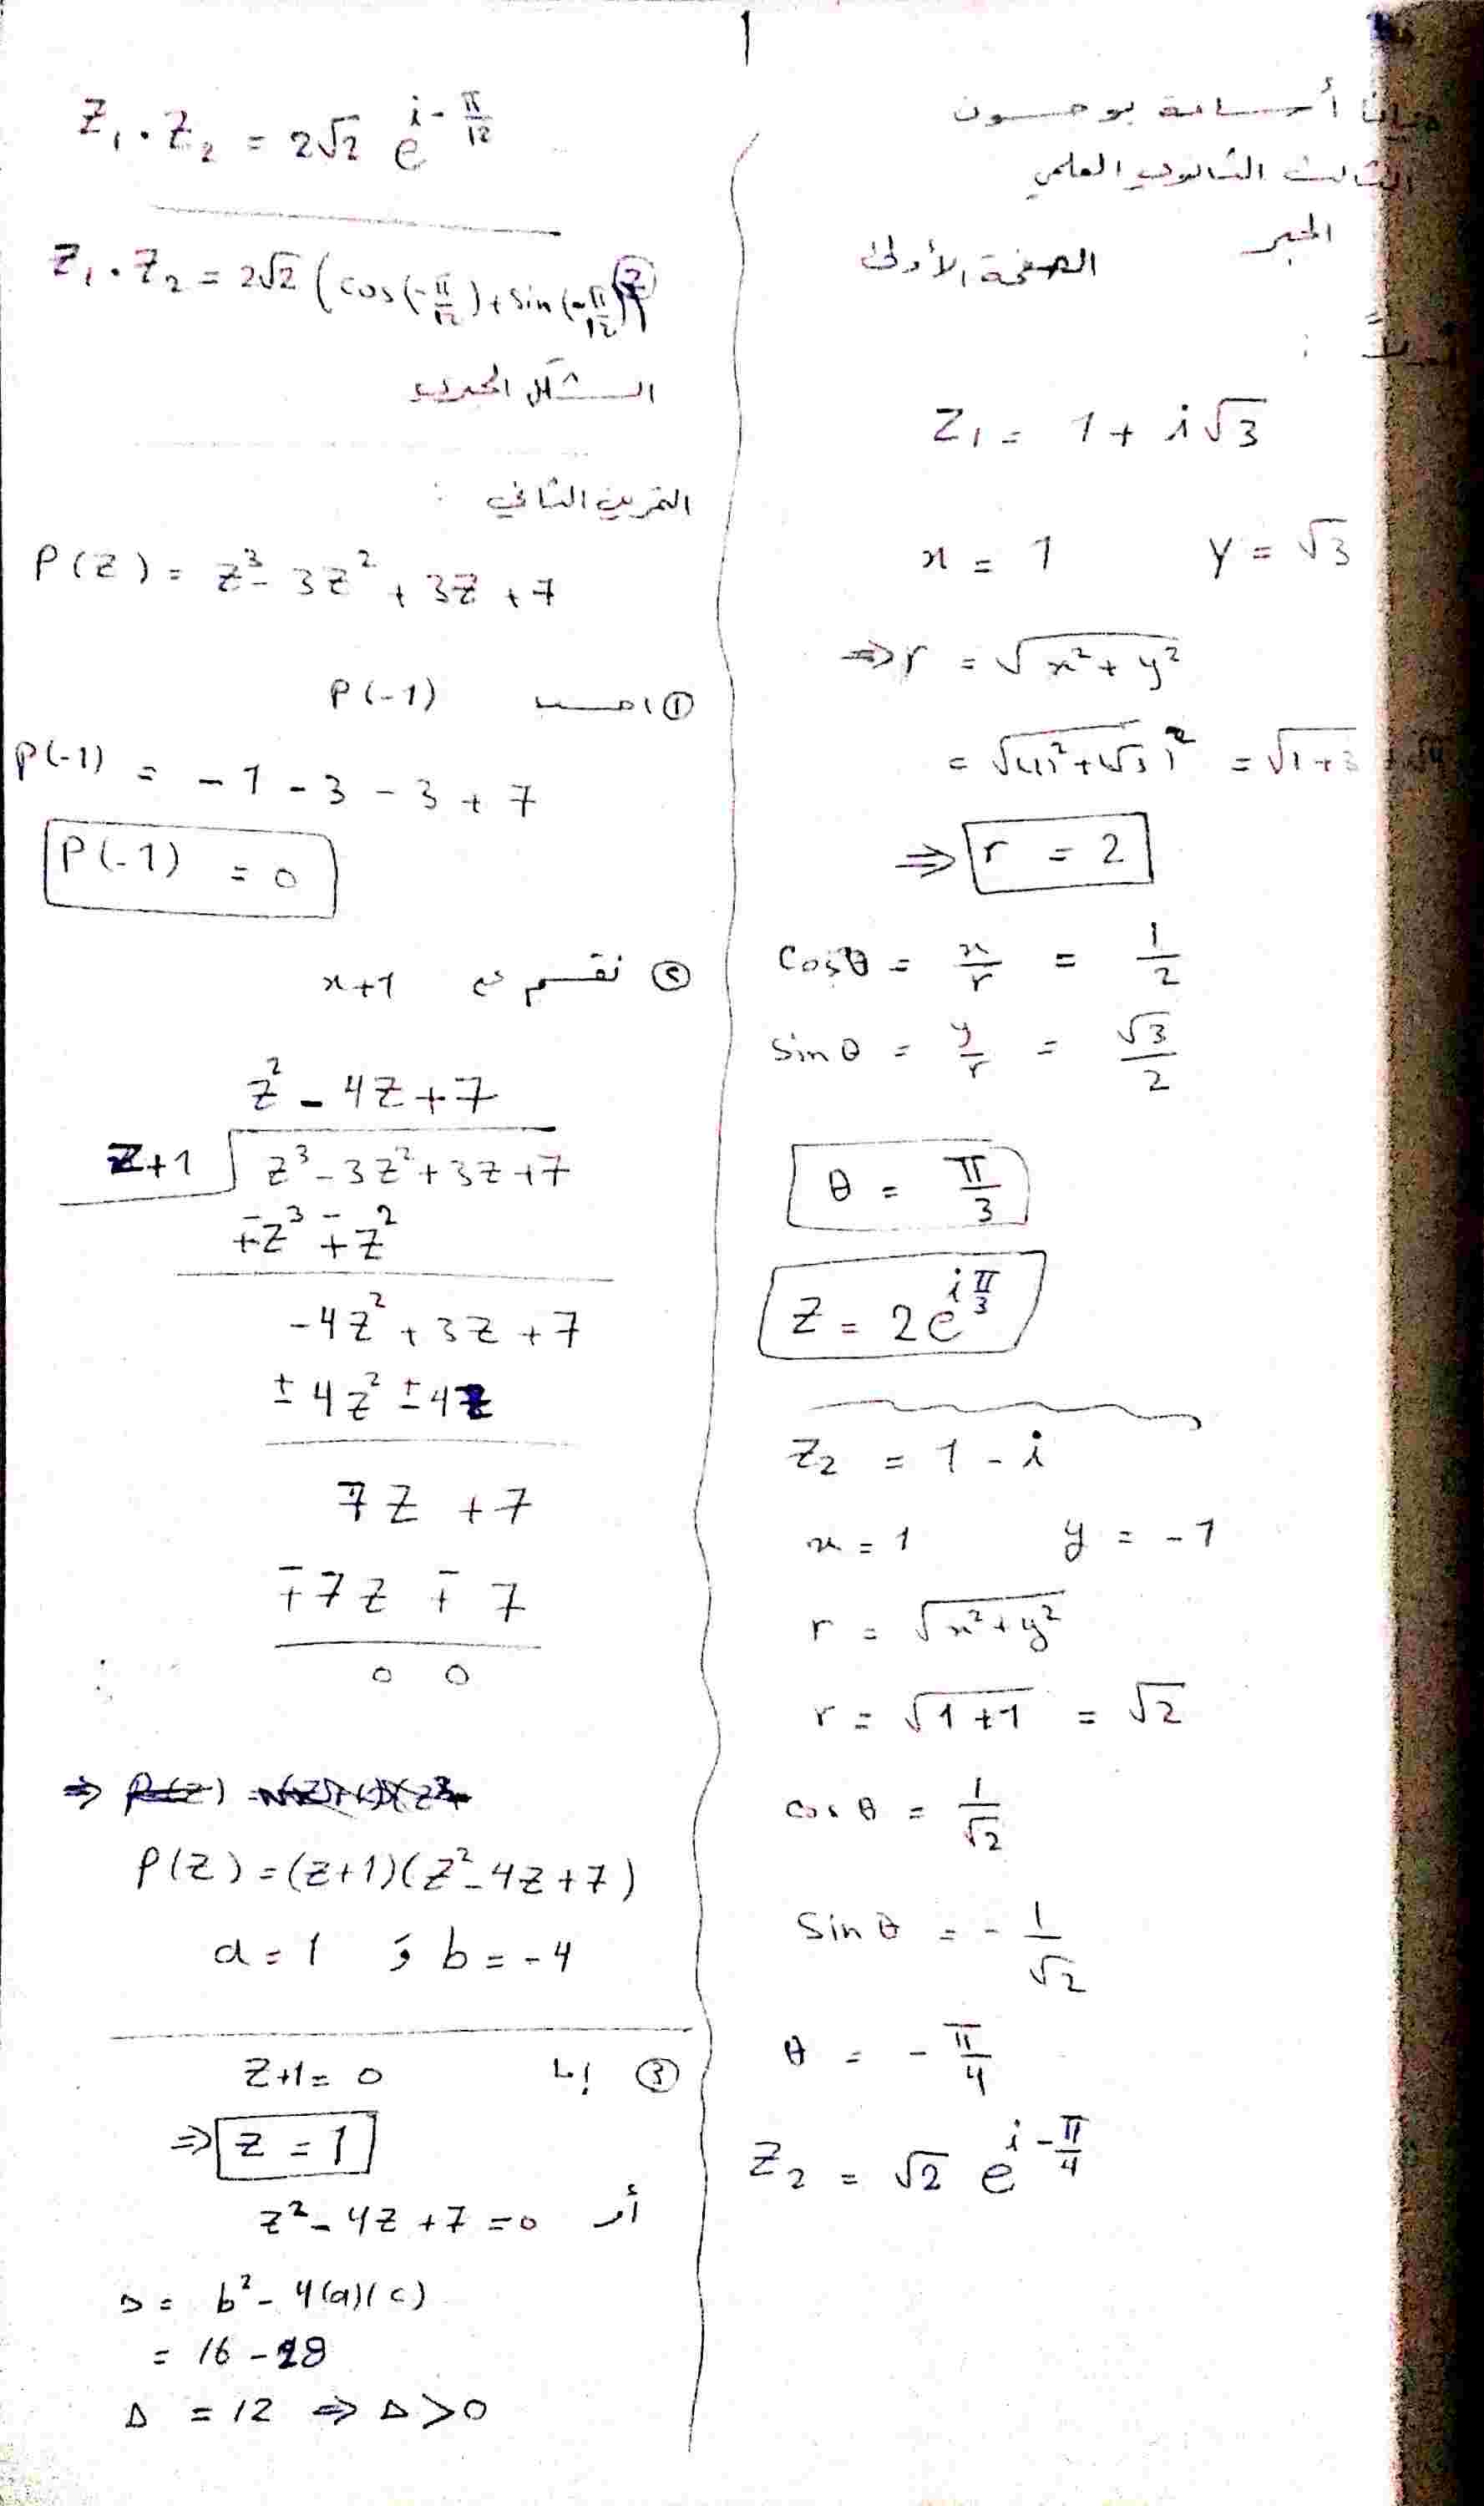 1
أسامة بوحسون
الثالث الثانوي العلمي
الجبر
الصفحة الأولى
أولاً :
Z₁ = 1 + i√3
x = 1 y = √3
⇒ r = √(x² + y²)
= √((1)² + (√3)²) = √(1+3) = √4
⇒ r = 2
cosθ = x/r = 1/2
sinθ = y/r = √3/2
θ = π/3
Z = 2e^(i π/3)
Z₂ = 1 - i
x = 1 y = -1
r = √(x² + y²)
r = √(1+1) = √2
cosθ = 1/√2
Sinθ = - 1/√2
θ = - π/4
Z₂ = √2 e^(i - π/4)
Z₁ . Z₂ = 2√2 e^(i - π/12)
Z₁ . Z₂ = 2√2 (cos(-π/12) + sin(-π/12)
التمرين الثاني :
P(Z) = Z³ - 3Z² + 3Z + 7
① احسب P(-1)
P(-1) = -1 - 3 - 3 + 7
P(-1) = 0
② نقسم ع x+1
Z² - 4Z + 7
Z+1 Z³ - 3Z² + 3Z + 7
∓Z³ ∓Z²
-4Z² + 3Z + 7
±4Z² ±4Z
7Z + 7
∓7Z ∓7
0 0
⇒
P(Z) = (Z+1)(Z² - 4Z + 7)
a = 1 و b = -4
③ إما Z+1 = 0
⇒ Z = 1
أو Z² - 4Z + 7 = 0
Δ = b² - 4(a)(c)
= 16 - 28
Δ = 12 ⇒ Δ > 0